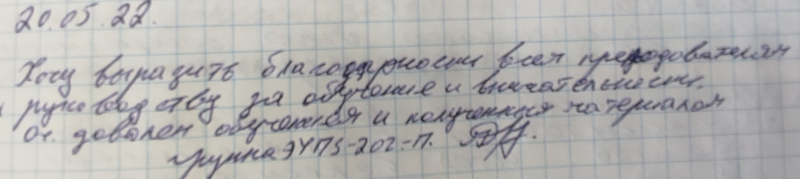 20.05.22.
Хочу выразить благодарность всем преподователям
руководству за обучение и внимательность.
Оч. доволен обучением и полученным материалом
группа ЭУПБ-202-П.